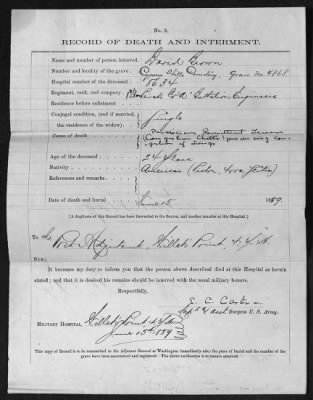 No. 2.
RECORD OF DEATH AND INTERMENT.
Name and number of person interred. David Brown
Number and locality of the grave. Cypress Hills Cemetery, Grave No. 4868
Number of the deceased
Regiment, rank, and company. Private Co "B" Battalion Engineers
Residence before enlistment
Conjugal condition, (and if married, Single
the residence of the widow).
Cause of death Remittent Fever
Age of the deceased 24 Years
Nativity American
References and remarks
Date of death and burial June 15 1889.
[A duplicate of this Record has been forwarded to the Sexton, and another remains at this Hospital.]
To the Post Adjutant, Willets Point, N.Y.H.
SIR:
It becomes my duty to inform you that the person above described died at this Hospital as herein
stated; and that it is desired his remains should be interred with the usual military honors.
Respectfully,
Capt & Asst Surgeon U. S. Army.
MILITARY HOSPITAL, Willets Point N.Y.H.
June 15th 1889
This copy of Record is to be transmitted to the Adjutant General at Washington immediately after the place of burial and the number of
the grave have been ascertained and registered. The above certificate is to remain annexed.